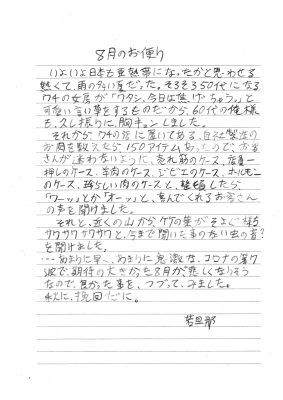 8月のお便り
いよいよ日本も亜熱帯になったかと思わせる
熱くて、雨の多い夏だった。そろそろ50代になる
ウチの女房が「ワタシ、今日は焦げちゃう。」と
可愛い言い事をするものだから、60代の種様
も、久し振りに、胸キュンしました。
それから、ウチの店に置いてある、自社製造の
お肉を数えたら、150アイテムあったので、お客
さんが迷わないように、売れ筋のケース、店長一
押しのケース、羊肉のケース、ジビエのケース、ホルモン
のケース、珍らしい肉のケースと、整頓したら、
「ワーッ」とか「オーッ」と、喜んでくれるお客さん
の声を聞けました。
それと、近くの山から、ケアの葉がそよぐ様な
サワサワサワサワと、今まで聞いた事のない虫の音?
を聞けました。
…あまりに早く、あまりに急激な、コロナの第7
波で、期待の大きかった8月が、悲しくなりそう
なので、良かった事を、つづって、みました。
、挽回だに。
若旦那